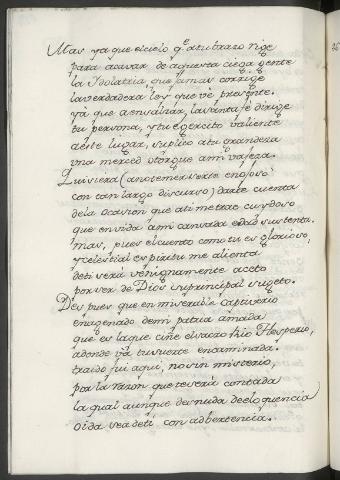 Mas ya que el cielo q̃ atu brazo Rige
para acavar de aquesta ciega gente
la Ydolatria que jamas corrige
la verdadera ley que ve presente.
ya que a ensalzar la santa fè dirige
tu persona, y tu egercito valiente
a este lugar, suplico a tu grandeza
vna merced otorgue a mi vageza.
Quiviera (a no temer verte enojoso
con tan largo discurso) darte cuenta
de la ocasion que a ti me trae cuydoso
que en vida a mi cansada edad sustenta.
mas, pues el cuento como tu es glorioso,
y celestial espiritu me alienta
de ti serà venignamente aceto
por ver de Dios su principal sugeto.
Des pues que en miserable captiverio
enagenado de mi patria amada
que es la que ciñe el sacro Rio Hesperio,
adonde và tu suerte encaminada.
traido fui aqui, no sin misterio,
por la razon que te serà contada
la qual aunque desnuda de eloquencia
oida sea de ti con adbertencia.